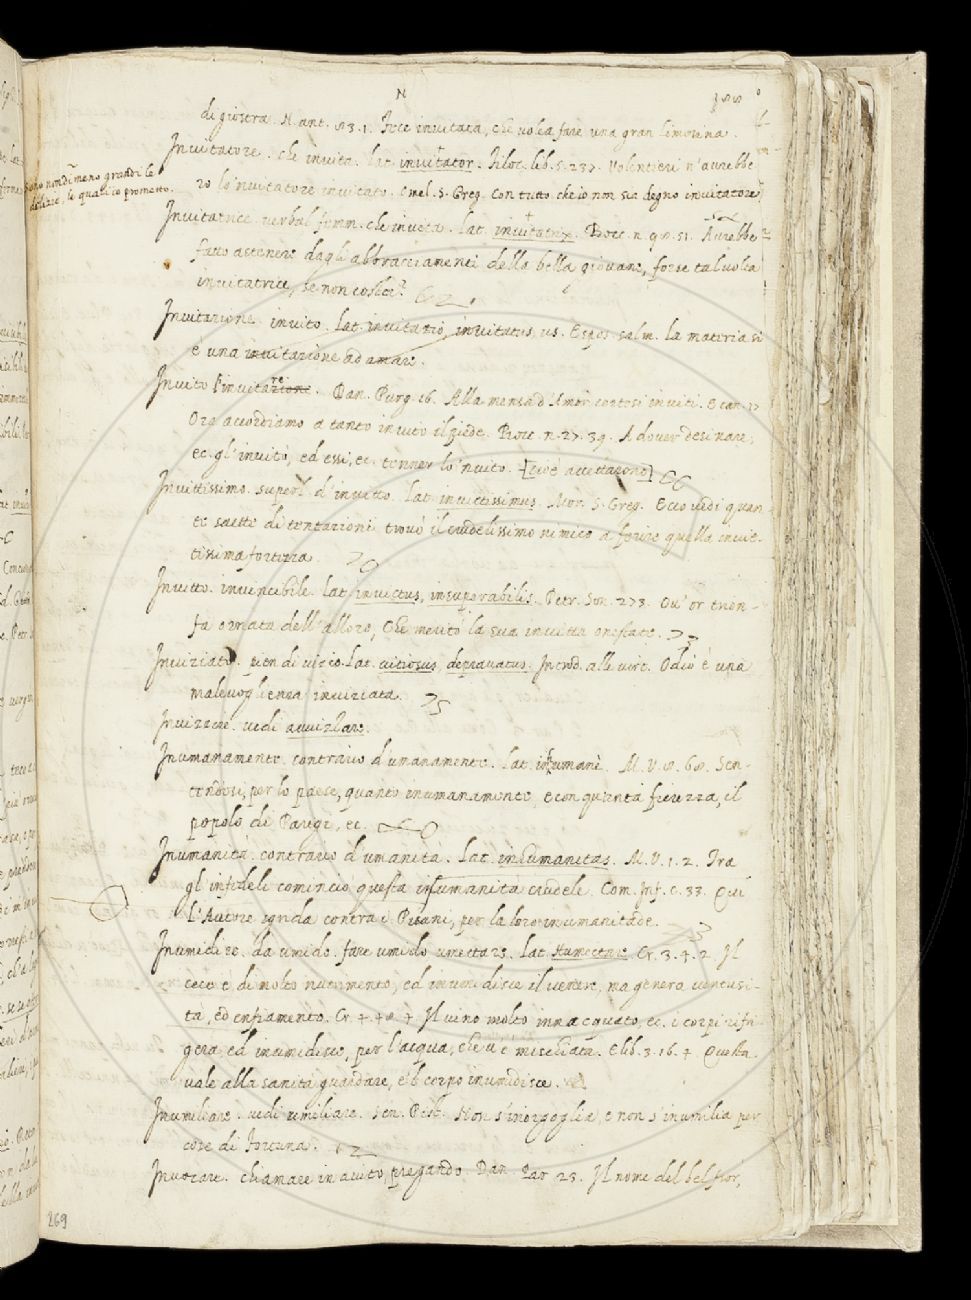 N
di giostra. N. ant. 83. 1. Fece invitata, che volea fare una gran limosina.
Invitatore. che invita. lat. invitator. Filoc. lib. 5. 237. Volentieri n'avrebbe
ro lo'nvitatore invitato. Omel. S. Greg. Con tutto che io non sia degno invitatore
sono nondimeno grandi le
delizie, le quali io prometto.
Invitatrice. verbal femm. che invita. lat. invitatrix. Bocc. n. 98. 51. Avrebbe
fatto astenere dagli abbracciamenti della bella giovane, forse talvolta
invitatrice, se non cosicc?
Invitazione. invito. lat. invitatio, invitatus, us. Espos. salm. la materia si
è una invitazione ad amare.
Invito l'invitare. Dan. Purg. 16. Alla mensa d'Amor cortesi inviti. E can. 17
Ora accordiamo a tanto invito il piede. Bocc. n. 27. 39. A dover desinare,
ec. gl'invitò, ed essi, ec. tenner lo'nvito. [cioè accettarono]
Invittissimo. superl. d'invitto. lat. invictissimus. Mor. S. Greg. Ecco vedi quan
te saette di tentazioni trovò il crudelissimo nimico a ferire quella invit-
tissima fortezza.
Invitto. invincibile. lat. invictus, insuperabilis. Petr. Son. 273. Ov'or trion-
fa ornata dell'alloro, Che meritò la sua invitta onestate.
Inviziato. pien di vizio. lat. vitiosus, depravatus. Introd. alle virt. Odio è una
malevoglienza inviziata.
Invizzire. vedi avvizzare.
Inumanamente. contrario d'umanamente. lat. inhumanè. M. V. 8. 68. Sen-
tendosi, per lo paese, quanto inumanamente, e con quanta fierezza, il
popolo di Parigi, ec.
Inumanità. contrario d'umanità. lat. inhumanitas. M. V. 1. 2. Tra
gl'infedeli cominciò questa inumanità crudele. Com. Inf. c. 33. Qui
L'Autore sgrida contra i Pisani, per la loro inumanitade.
Inumidire. da umido. fare umido umettare. lat. Humectare. Cr. 3. 4. 2. Il
cece è di molto nutrimento, ed inumidisce il ventre, ma genera ventusi-
tà, ed enfiamento. Cr. 4. 48. 4 Il vino molto innacquato, ec. i corpi rifri-
gera, ed inumidisce, per l'acqua, che v'è mischiata. E lib. 3. 16. 4. Questa
vale alla sanità guardare, e'l corpo inumidisce.
Inumiliare. vedi umiliare. Sen. Pist. Non s'inorgoglia, e non s'inumilia per
cose di Fortuna.
Invocare. chiamare in aiuto, pregando. Dan. Par. 23. Il nome del bel fior,
269